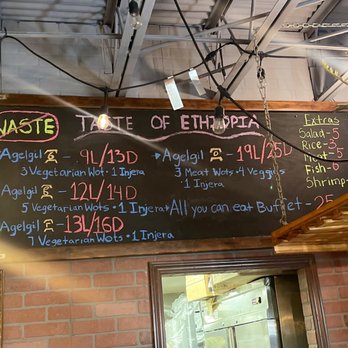 WASTE TASTE OF ETHIOPIA
Agelgil - 9L/13D
3 Vegetarian Wot · 1 Injera
Agelgil - 12L/14D
5 Vegetarian Wots · 1 Injera
Agelgil - 13L/16D
7 Vegetarian Wots · 1 Injera
Agelgil - 19L/25D
3 Meat Wots · 4 Veggies
· 1 Injera
All you can eat Buffet - 25
Extras
Salad - 5
Rice - 3
Meat - 5
Fish - 6
Shrimp -